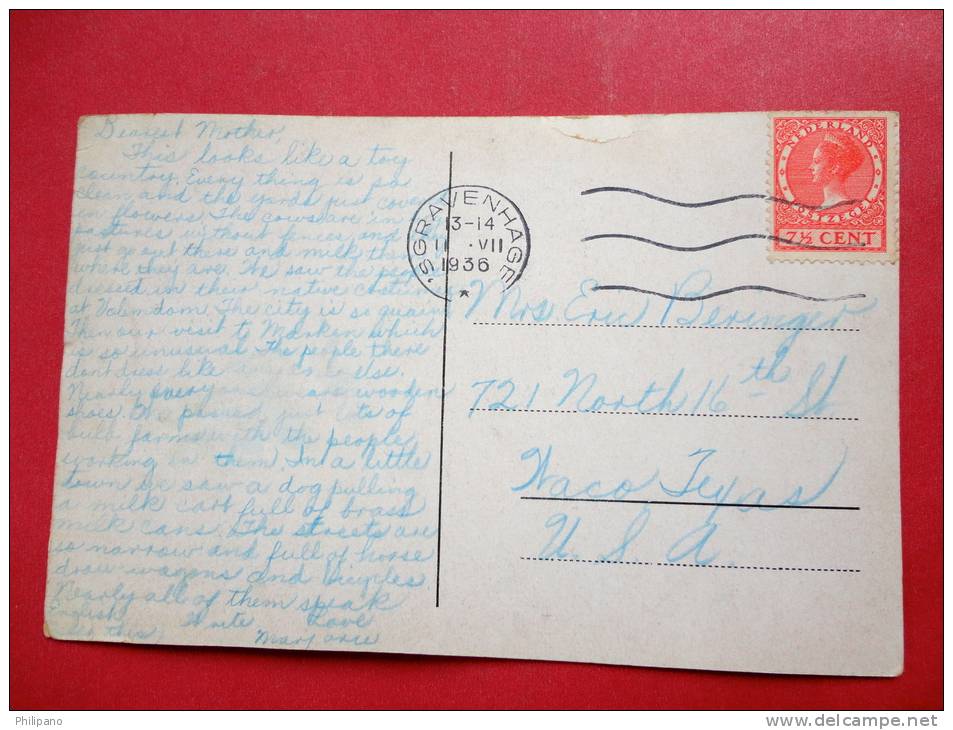 Dearest Mother,
This looks like a toy
country. Every thing is so
clean and the yards just cover
in flowers. The cows are in
pastures without fences, and
just go out there and milk them
where they are. We saw the people
dressed in their native costumes
at Valemdom. The city is so quaint
Then our visit to Marken which
is so unusual. The people there
dont dress like else.
Nearly every wooden
shoes. We passed just lots of
bulb farms with the people
working in them. In a little
town we saw a dog pulling
a milk cart full of brass
milk cans. The streets are
so narrow and full of horse
draw wagons and bicycles.
Nearly all of them speak
English Write Love
to this Marjorie
'SGRAVENHAGE
13-14
11 ·VII
1936
NEDERLAND
POSTZEGEL
7½ CENT
Mrs. Eric Beringer
721 North 16th St
Waco Texas
U. S. A.
Philipano
www.delcampe.net